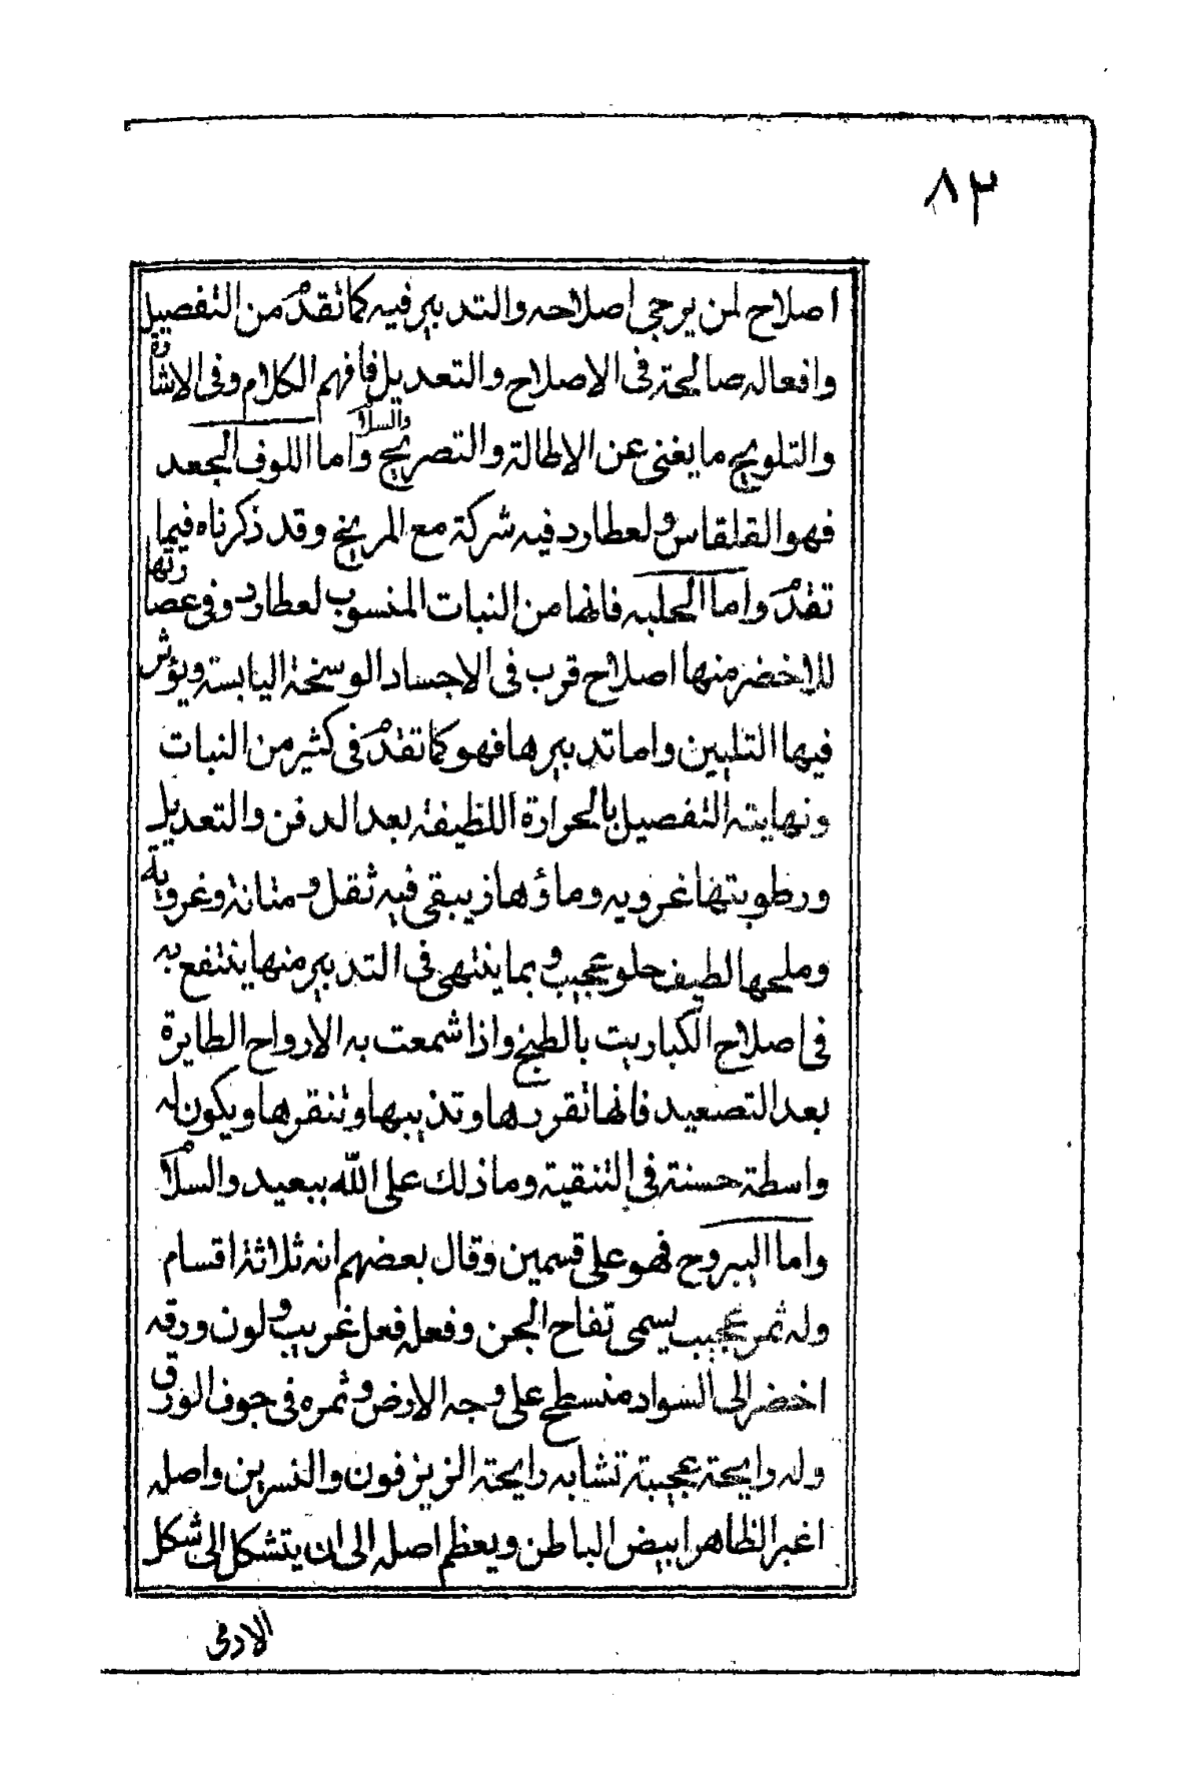 ٨٣
اصلاح لمن يرجى اصلاحه والتدبير فيه كما تقدم من التفصيل
وافعاله صالحة فى الاصلاح والتعديل فافهم الكلام وفى الاشارة
والتلويح ما يغنى عن الاطالة والتصريح والسلام واما اللوف الجعد
فهو القلقاس ولعطارد فيه شركة مع المريخ وقد ذكرناه فيما
تقدم واما الحلبه فانها من النبات المنسوب لعطارد وفى عصارتها
للاخضر منها اصلاح قرب فى الاجساد الوسخة اليابسة ويؤثر
فيها التليين واما تدبيرها فهو كما تقدم فى كثير من النبات
ونهايته التفصيل بالحرارة اللطيفة بعد الدفن والتعديل
ورطوبتها غرويه وماؤها زيبقى فيه ثقل ومتانة وغروية
وملحها لطيف حلو عجيب وبما ينتهى فى التدبير منها ينتفع به
فى اصلاح الكباريت بالطبخ واذا شمعت به الارواح الطايرة
بعد التصعيد فانها تقررها وتذيبها وتنقرها ويكون له
واسطة حسنة فى التنقية وما ذلك على الله ببعيد والسلام
واما اليبروح فهو على قسمين وقال بعضهم انه ثلاثة اقسام
وله ثمر عجيب يسمى تفاح الجن وفعله فعل غريب ولون ورقه
اخضر الى السواد منسطح على وجه الارض وثمره فى جوف الورق
وله رايحة عجيبة تشابه رايحة الزيزفون والنسرين واصله
اغبر الظاهر ابيض الباطن ويعظم اصله الى ان يتشكل الى شكل
الادمى